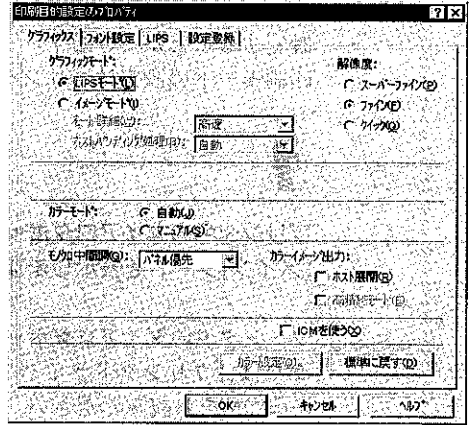 印刷目的設定のプロパティ
グラフィックス フォント設定 LIPS 設定登録
グラフィックモード:
LIPSモード(L)
イメージモード(I)
高速
自動
解像度:
スーパーファイン(P)
ファイン(F)
クイック(Q)
カラーモード:
自動(J)
マニュアル(S)
モノクロ中間調(G): パネル優先
カラーイメージ出力:
ホスト展開(R)
ICMを使う(X)
カラー設定(O)... 標準に戻す(D)
OK キャンセル ヘルプ